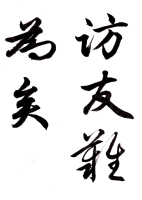 访友難
為矣